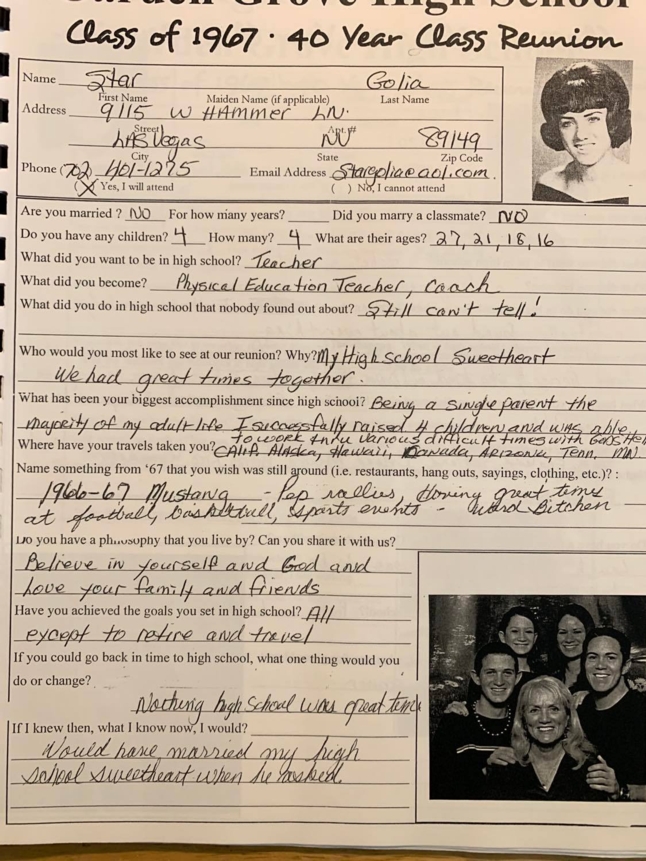 Garden Grove High School
Class of 1967 · 40 Year Class Reunion
Name Star Golia
First Name Maiden Name (if applicable) Last Name
Address 9115 W HAMMER LN.
Street Apt.#
LAS Vegas NV 89149
City State Zip Code
Phone (702) 401-1275 Email Address Stargolia@aol.com
(X) Yes, I will attend ( ) No, I cannot attend
Are you married ? NO For how many years? Did you marry a classmate? NO
Do you have any children? 4 How many? 4 What are their ages? 27, 21, 18, 16
What did you want to be in high school? Teacher
What did you become? Physical Education Teacher, coach
What did you do in high school that nobody found out about? Still can't tell!
Who would you most like to see at our reunion? Why? My High school Sweetheart
We had great times together.
What has been your biggest accomplishment since high school? Being a single parent the
majority of my adult life I successfully raised 4 children and was able
to work thru various difficult times with God's Hel
Where have your travels taken you? CALIF, Alaska, Hawaii, Canada, Arizona, Tenn, MN
Name something from '67 that you wish was still around (i.e. restaurants, hang outs, sayings, clothing, etc.)? :
1966-67 Mustang - Pep rallies, Having great times
at football, basketball, sports events - word Bitchen
Do you have a philosophy that you live by? Can you share it with us?
Believe in yourself and God and
love your family and friends
Have you achieved the goals you set in high school? All
except to retire and travel
If you could go back in time to high school, what one thing would you
do or change?
Nothing high school was great time
If I knew then, what I know now, I would?
Would have married my high
school sweetheart when he asked.